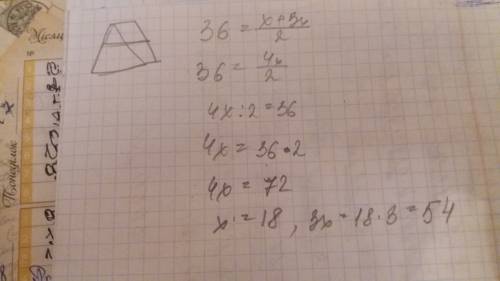 36 = x+3x/2
36 = 4x/2
4x : 2 = 36
4x = 36 · 2
4x = 72
x = 18, 3x = 18 · 3 = 54
Понеділок